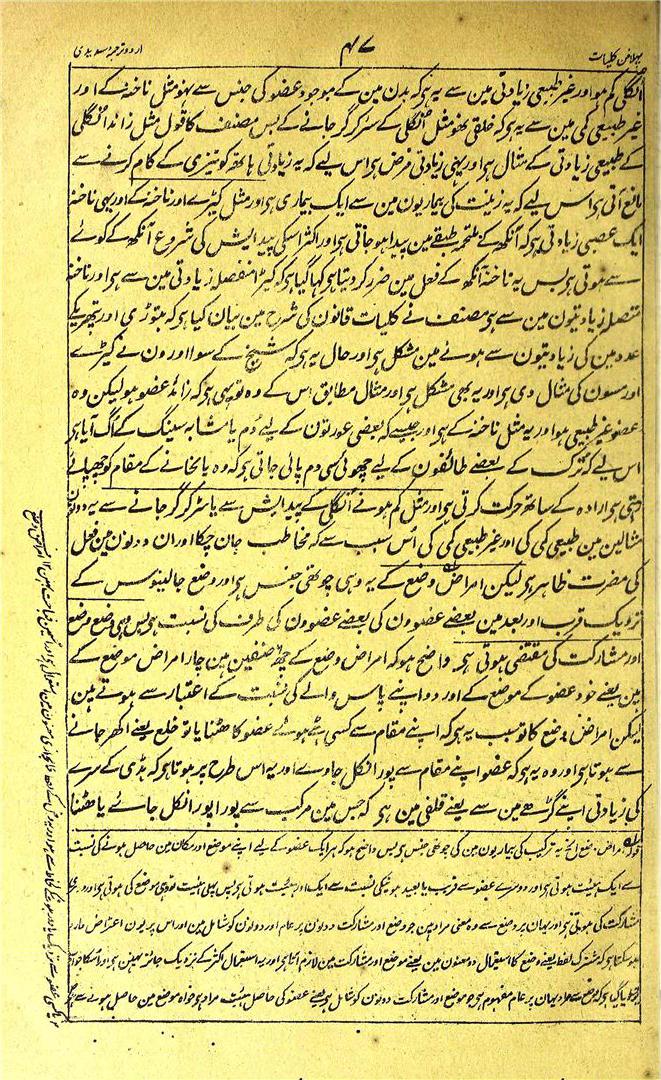 پہلا فن کلیات
۴۷
اردو ترجمہ سویدی
انگلی کم ہو اور غیر طبیعی زیادتی مین سے یہ ہی کہ بدن مین کے موجود عضو کی جنس سے نہو مثل ناخنہ کے اور
غیر طبیعی کمی مین سے یہ ہی کہ خلقی نہو مثل انگلی کے سڑ کر گر جانے کے بس مصنف کا قول مثل زائد انگلی
کے طبیعی زیادتی کے مثال ہی اور یہی زیادتی مرض ہی اس لیے کہ یہ زیادتی ہاتھ کو تیزی کے کام کرنے سے
مانع آتی ہی اس لیے کہ یہ زینت کی بیماریون مین سے ایک بیماری ہی اور مثل کیڑے اور ناخنہ کے اور یہی ناخنہ
ایک عصبی زیادتی ہی کہ آنکھ کے ملتحمہ طبقے مین پیدا ہو جاتی ہی اور اکثر اسکی پیدایش کی شروع آنکھ کے کوئے
سے ہوتی ہی بس یہ ناخنہ آنکھ کے فعل مین ضرر کر دیتا ہی کہا گیا ہی کہ کیڑا منفصل زیادتی مین سے ہی اور ناخنہ
متصل زیادتیون مین سے ہی مصنف نے کلیات قانون کی شرح مین بیان کیا ہی کہ پتوڑی اور پتھر کے
عدد مین کی زیادتیون سے ہونے مین مشکل ہی اور حال یہ ہی کہ شیخ کے سوا اورون نے کیڑے
اور مسون کی مثال دی ہی اور یہ بھی مشکل ہی اور مثال مطابق اس کے وہ تو یہی ہی کہ زائد عضو ہو لیکن وہ
عضو غیر طبیعی ہو اور یہ مثل ناخنہ کے ہی اور جیسے کہ بعضی عورتون کے لیے دُم یا مشابہ سینگ کے اُگ آیا ہی
اس لیے کہ ترک کے بعضے طائفون کے لیے چھوٹی سی دم پائی جاتی ہی کہ وہ پاخانے کے مقام کو چھپائے
رہتی ہی ارادہ کے ساتھ حرکت کرتی ہی اور مثل کم ہونے انگلی کے پیدایش سے یا سڑ کر گر جانے سے یہ دونون
مثالین مین طبیعی کمی کی اور غیر طبیعی کمی کی اُس سبب سے کہ مخاطب جان چکا اور ان دونون مین فعل
کی مضرت ظاہر ہی لیکن امراض وضع کے یہ وہی چوتھی جنس ہی اور وضع جالینوس کے
نزدیک قرب اور بعد مین بعضے عضوون کی بعضے عضوون کی طرف کی نسبت ہی بس وہی وضع موضع
اور مشارکت کی مقتضی ہوتی ہی واضح ہو کہ امراض وضع کے چھ صنفین ہین چار امراض موضع کے
ہین یعنے خود عضو کے موضع کے اور دو اپنے پاس والے کی نسبت کے اعتبار سے ہوتے ہین
لیکن امراض وضع کا تو سبب یہ ہی کہ اپنے مقام سے کسی ہٹے ہوئے عضو کا ہٹنا یا تو خلع یعنے اکھر جانے
سے ہوتا ہی اور وہ یہ ہی کہ عضو اپنے مقام سے پورا نکل جاوے اور یہ اس طرح پر ہوتا ہی کہ ہڈی کے سرے
کی زیادتی اپنے گڑھے مین سے یعنے قلفی مین ہی کہ جس مین مرکب ہے پورا پورا نکل جائے یا ہٹنا
قولہ امراض وضع الخ یہ ترکیب کی بیماریون مین کی چوتھی جنس ہی بس واضح ہو کہ ہر ایک عضو کے لیے اپنے موضع اور مکان مین حاصل ہونے کی نسبت
سے ایک ہیئت ہوتی ہی اور دوسرے عضو سے قریب یا بعید ہونیکی نسبت سے ایک اور ہیئت ہوتی ہی بس پہلی ہیئت تو وہی موضع کی ہوتی ہی اور دوسری
مشارکت کی ہوتی ہی اور یہان پر وضع سے وہ معنی مراد ہین جو وضع اور مشارکت دونون پر عام اور دونون کو شامل ہین اور اس پر یون اعتراض وارد
ہو سکتا ہی کہ مشترک لفظ یعنے وضع کا استعمال دو معنون مین یعنے موضع اور مشارکت مین لازم آتا ہی اور یہ استعمال اکثر کے نزدیک جائز نہین ہی اور اسکا جواب
دیا گیا ہی کہ وضع سے مراد یہان پر عام مفہوم ہی جو موضع اور مشارکت دونون کو شامل ہی یعنے عضو کی حاصل ہیئت مراد ہی خواہ موضع مین حاصل ہونے سے ہو